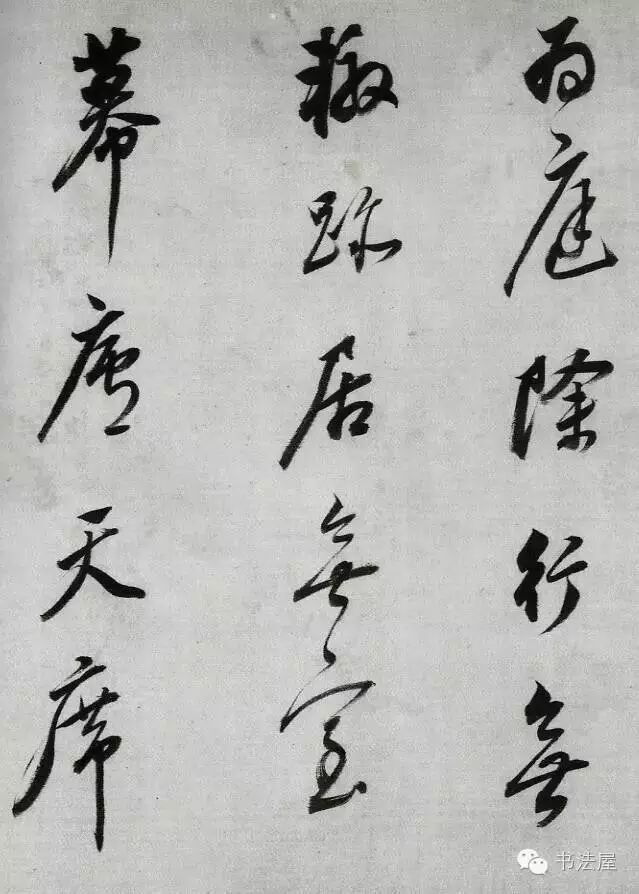 為庭除行無
轍跡居無室
幕廬天席
书法屋